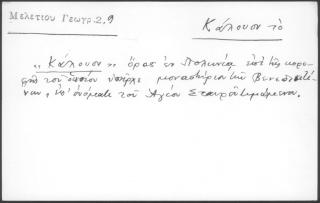 Μελετίου Γεωγρ. 2,9
Κάλουον τό
"Κάλουον" ὄρος ἐν Πολωνίᾳ ἐπὶ τῆς κορυ-
φῆς τοῦ ὁποίου ὑπῆρχε μοναστήριον τῶν Βενεδικτί-
νων, ἐπ' ὀνόματι τοῦ Ἁγίου Σταυροῦ τιμώμενον.